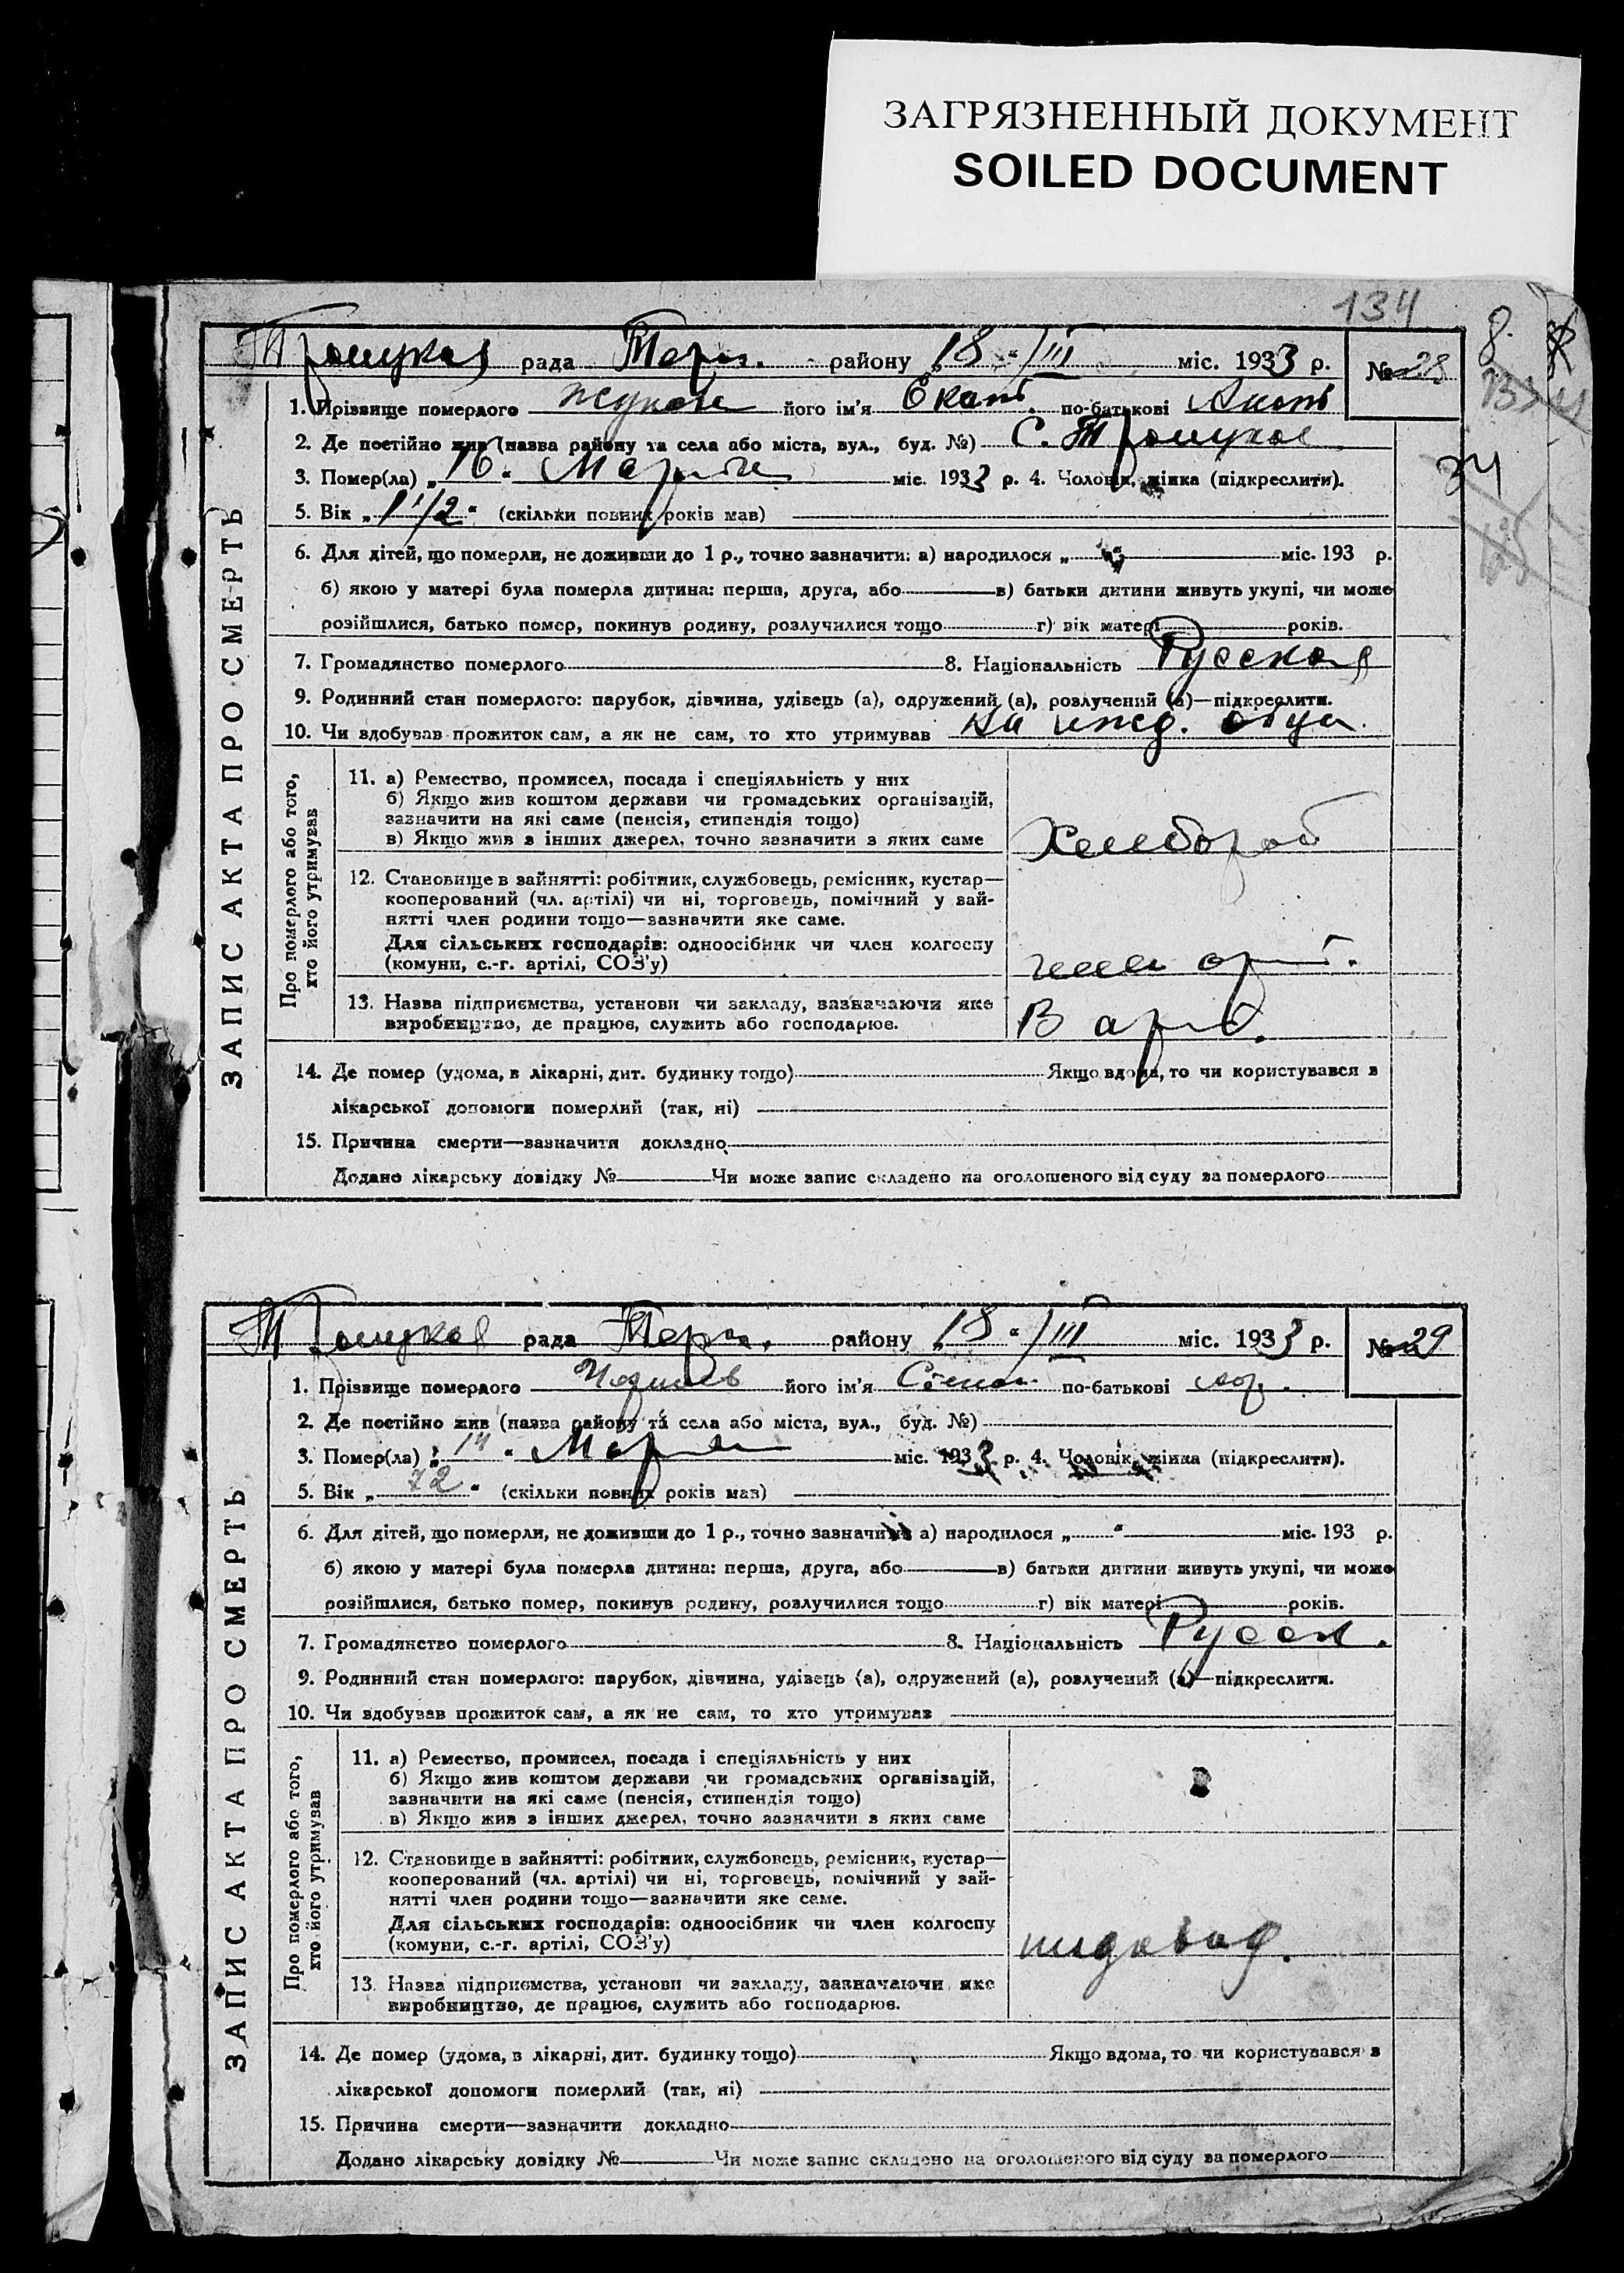 ЗАГРЯЗНЕННЫЙ ДОКУМЕНТ
SOILED DOCUMENT
134
Троицкая рада Терп. району „18“ /III міс. 1933 р. № 28
1. Прізвище померлого його ім'я по-батькові
2. Де постійно жив (назва району та села або міста, вул., буд. №) С. Троицкое
3. Помер(ла) „16“ Марта міс. 1933 р. 4. Чоловік, жінка (підкреслити).
5. Вік „1 1/2“ (скільки повних років мав)
6. Для дітей, що померли, не доживши до 1 р., точно зазначити: а) народилося „ “ міс. 193 р.
б) якою у матері була померла дитина: перша, друга, або в) батьки дитини живуть укупі, чи може
розійшлися, батько помер, покинув родину, розлучилися тощо г) вік матері років.
7. Громадянство померлого 8. Національність Русская
9. Родинний стан померлого: парубок, дівчина, удівець (а), одружений (а), розлучений (а)—підкреслити.
10. Чи здобував прожиток сам, а як не сам, то хто утримував на ижд. отца
ЗАПИС АКТА ПРО СМЕРТЬ
Про померлого або того,
хто його утримував
11. а) Ремество, промисел, посада і спеціяльність у них
б) Якщо жив коштом держави чи громадських організацій,
зазначити на які саме (пенсія, стипендія тощо)
в) Якщо жив з інших джерел, точно зазначити з яких саме
Хлебороб
12. Становище в зайнятті: робітник, службовець, ремісник, кустар—
кооперований (чл. артілі) чи ні, торговець, помічний у зай-
нятті член родини тощо—зазначити яке саме.
Для сільських господарів: одноосібник чи член колгоспу
(комуни, с.-г. артілі, СОЗ'у)
член арт.
13. Назва підприємства, установи чи закладу, зазначаючи яке
виробництво, де працює, служить або господарює.
В арт.
14. Де помер (удома, в лікарні, дит. будинку тощо) Якщо вдома, то чи користувався з
лікарської допомоги померлий (так, ні)
15. Причина смерти—зазначити докладно
Додано лікарську довідку № Чи може запис складено на оголошеного від суду за померлого
Троицкая рада Терп. району „18“ /III міс. 1933 р. № 29
1. Прізвище померлого його ім'я Степан по-батькові
2. Де постійно жив (назва району та села або міста, вул., буд. №)
3. Помер(ла) „14“ Марта міс. 1933 р. 4. Чоловік, жінка (підкреслити).
5. Вік „72“ (скільки повних років мав)
6. Для дітей, що померли, не доживши до 1 р., точно зазначити а) народилося „ “ міс. 193 р.
б) якою у матері була померла дитина: перша, друга, або в) батьки дитини живуть укупі, чи може
розійшлися, батько помер, покинув родину, розлучилися тощо г) вік матері років.
7. Громадянство померлого 8. Національність Русск.
9. Родинний стан померлого: парубок, дівчина, удівець (а), одружений (а), розлучений (а)—підкреслити.
10. Чи здобував прожиток сам, а як не сам, то хто утримував
ЗАПИС АКТА ПРО СМЕРТЬ
Про померлого або того,
хто його утримував
11. а) Ремество, промисел, посада і спеціяльність у них
б) Якщо жив коштом держави чи громадських організацій,
зазначити на які саме (пенсія, стипендія тощо)
в) Якщо жив з інших джерел, точно зазначити з яких саме
12. Становище в зайнятті: робітник, службовець, ремісник, кустар—
кооперований (чл. артілі) чи ні, торговець, помічний у зай-
нятті член родини тощо—зазначити яке саме.
Для сільських господарів: одноосібник чи член колгоспу
(комуни, с.-г. артілі, СОЗ'у)
индивид.
13. Назва підприємства, установи чи закладу, зазначаючи яке
виробництво, де працює, служить або господарює.
14. Де помер (удома, в лікарні, дит. будинку тощо) Якщо вдома, то чи користувався з
лікарської допомоги померлий (так, ні)
15. Причина смерти—зазначити докладно
Додано лікарську довідку № Чи може запис складено на оголошеного від суду за померлого